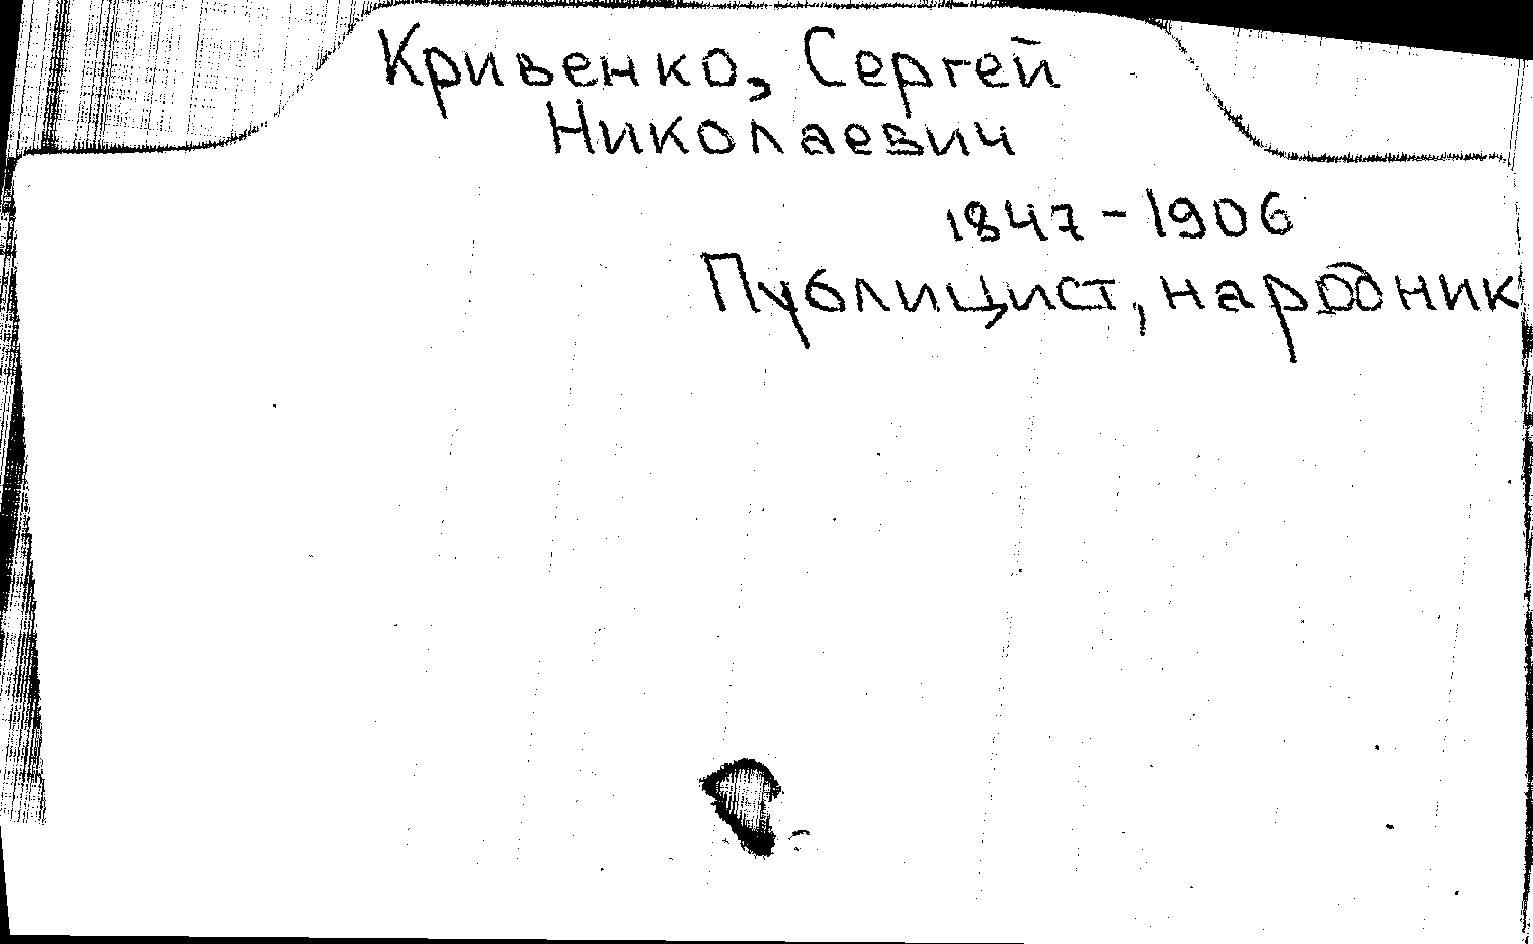 Кривенко, Сергей
Николаевич
1847-1906
Публицист, народник